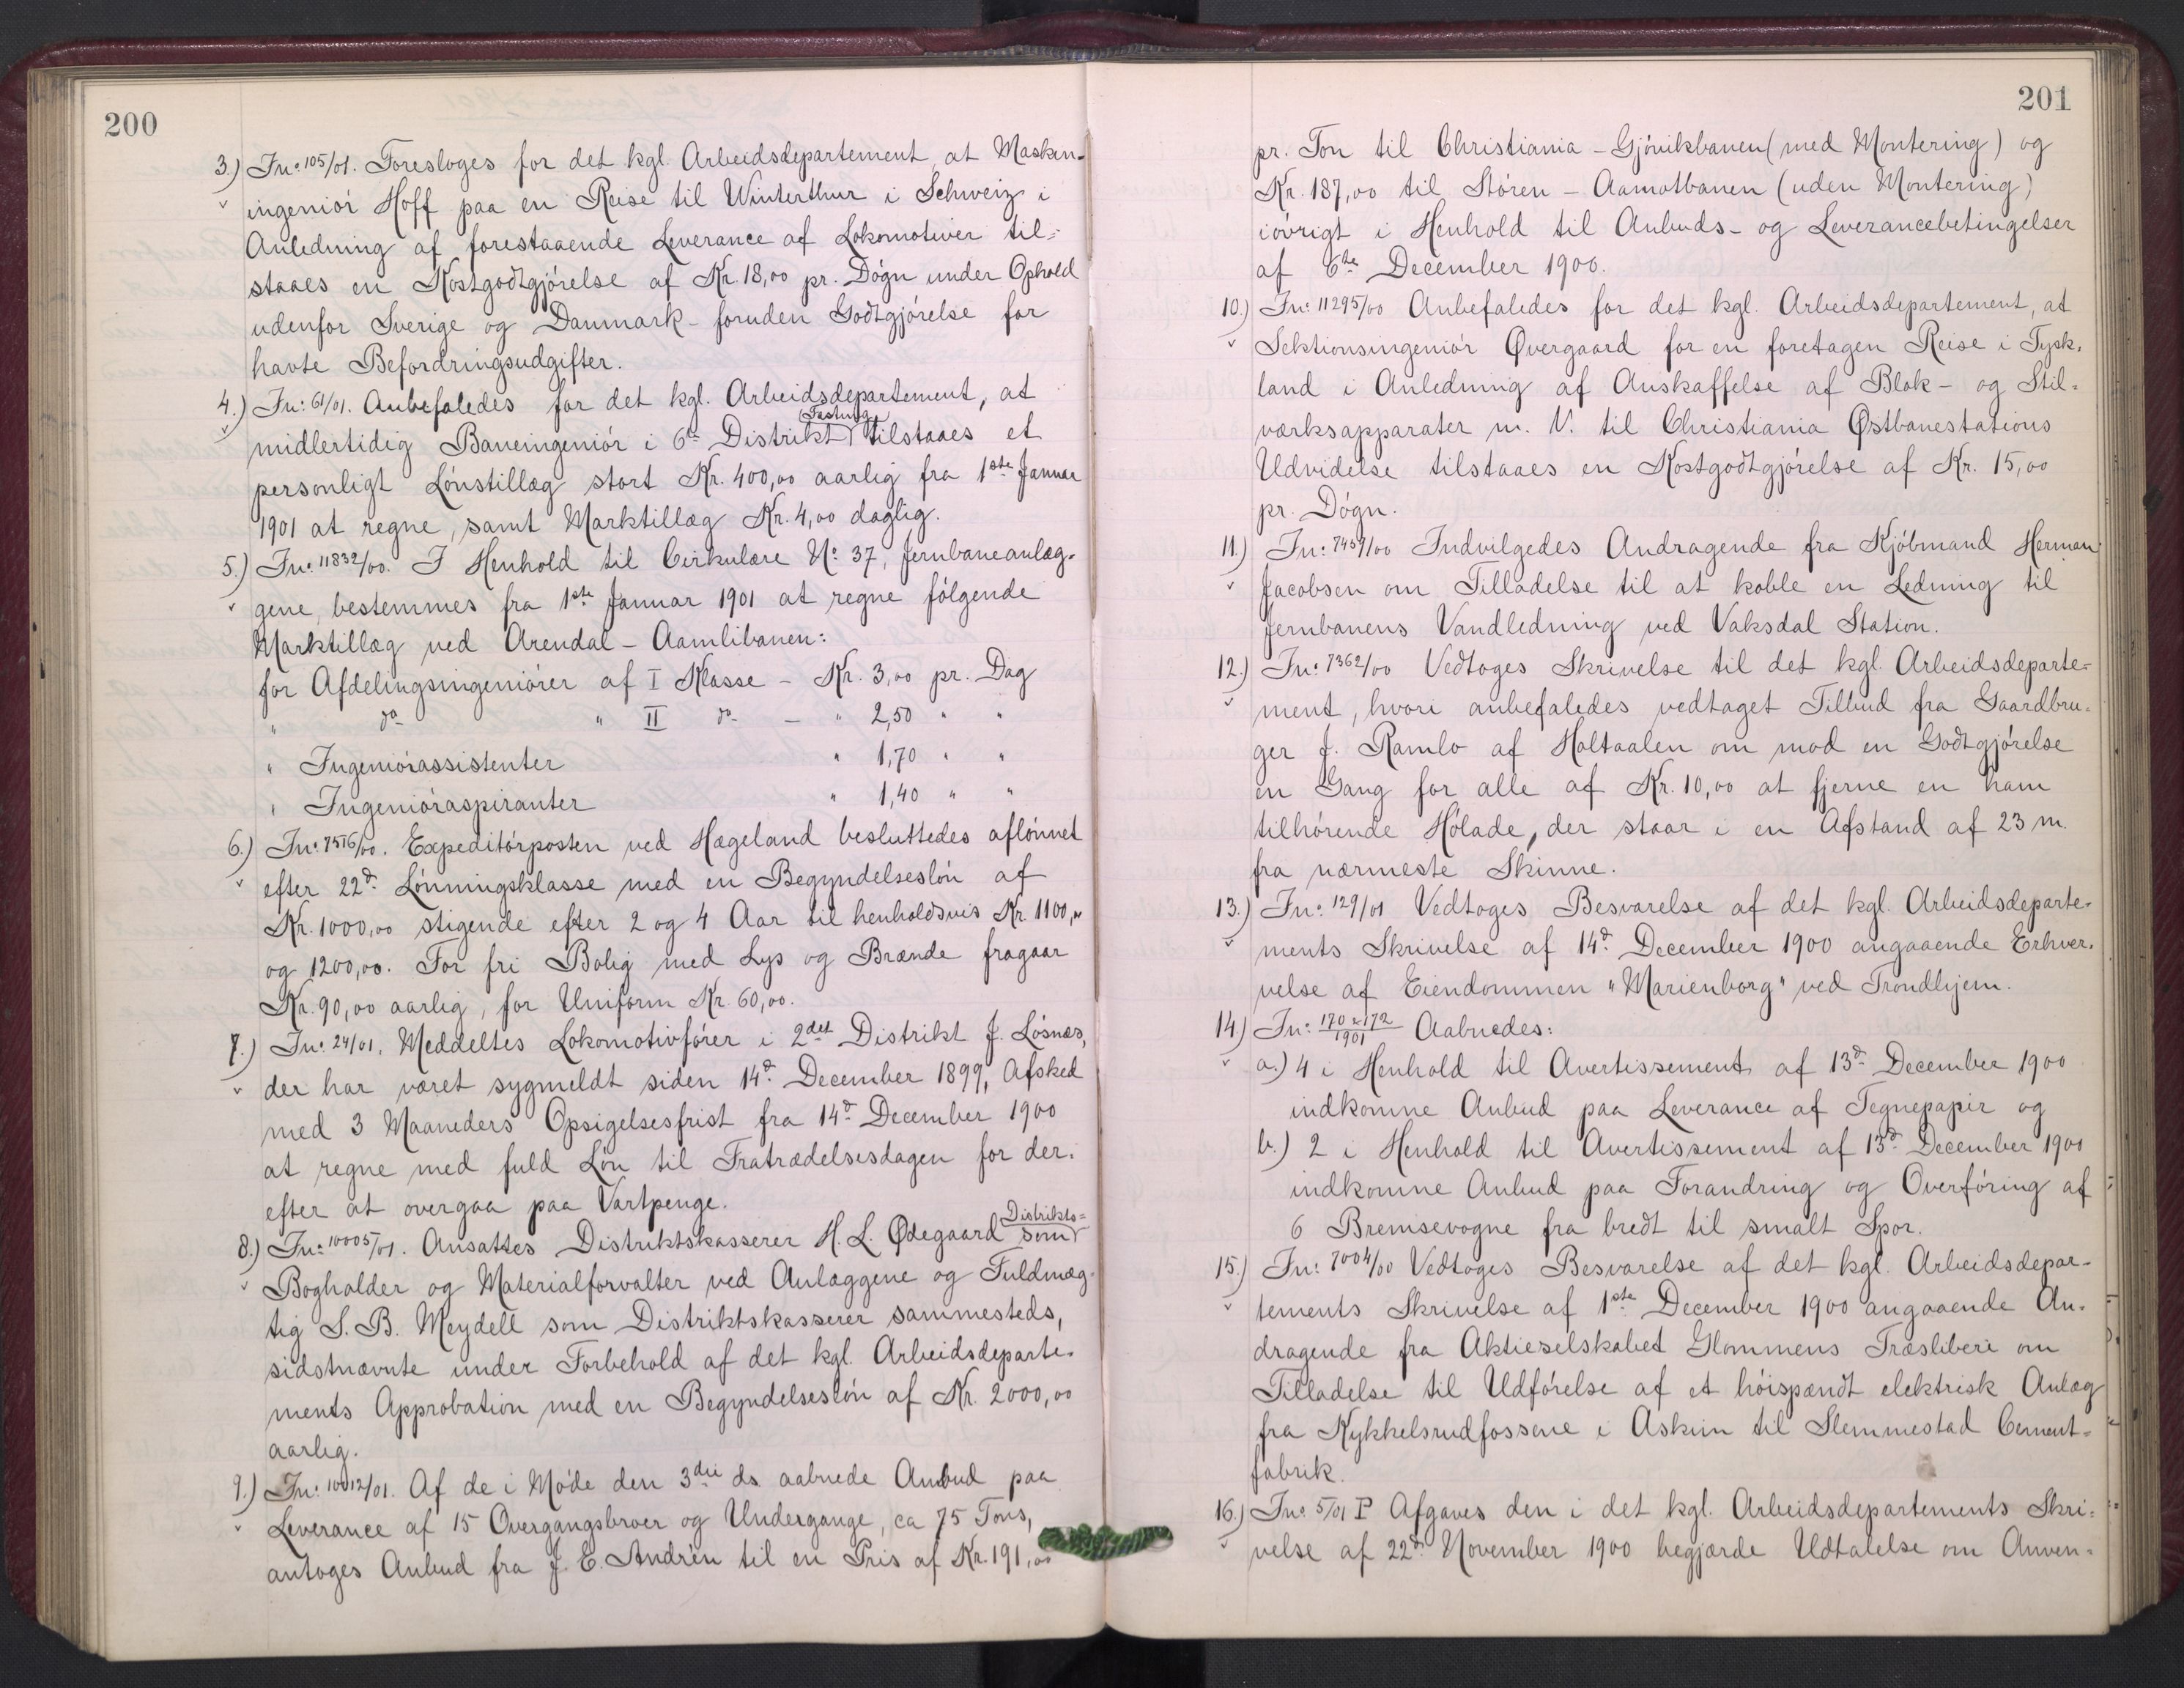 200
3.) Jn: 105/01. Foresloges for det kgl. Arbeidsdepartement at Maskin-
ingeniör Hoff paa en Reise til Winterthur i Schweiz i
Anledning af forestaaende Leverance af Lokomotiver til-
staaes en Kostgodtgjörelse af Kr. 18,00 pr. Dögn under Ophold
udenfor Sverige og Danmark - foruden Godtgjörelse for
havte Befordringsudgifter.
4.) Jn: 61/01. Anbefaledes for det kgl. Arbeidsdepartement, at
midlertidig Baneingeniör i 6te Distrikt tilstaaes et
personligt Lönstillæg stort Kr. 400,00 aarlig fra 1ste Januar
1901 at regne, samt Marktillæg Kr. 4,00 daglig.
5.) Jn: 11832/00. I Henhold til Cirkulære No 37, Jernbaneanlæg-
gene, bestemmes fra 1ste Januar 1901 at regne fölgende
Marktillæg ved Arendal - Aamlibanen:
for Afdelingsingeniörer af I Klasse - Kr. 3,00 pr. Dag
" do " II do - " 2,50 " "
" Ingeniörassistenter " 1,70 " "
" Ingeniöraspiranter " 1,40 " "
6.) Jn: 7516/00. Expeditörposten ved Hægeland besluttedes aflönnet
efter 22d Lönningsklasse med en Begyndelseslön af
Kr. 1000,00 stigende efter 2 og 4 Aar til henholdsvis Kr. 1100,"
og 1200,00. For fri Bolig med Lys og Brænde fragaar
Kr. 90,00 aarlig, for Uniform Kr. 60,00.
7.) Jn: 24/01. Meddeltes Lokomotivförer i 2det Distrikt J. Lösnæs,
der har været sygmeldt siden 14d December 1899, Afsked
med 3 Maaneders Opsigelsesfrist fra 14d December 1900
at regne med fuld Lön til Fratrædelsesdagen for der-
efter at overgaa paa Vartpenge.
Distrikts-
8.) Jn: 10005/01. Ansattes Distriktskasserer H. L. Ødegaard som
Bogholder og Materialforvalter ved Anlæggene og Fuldmæg-
tig S. B. Meydell som Distriktskasserer sammesteds,
sidstnævnte under Forbehold af det kgl. Arbeidsdeparte-
ments Approbation med en Begyndelseslön af Kr. 2000,00
aarlig.
9.) Jn: 10012/01. Af de i Möde den 3die ds. aabnede Anbud paa
Leverance af 15 Overgangsbroer og Undergange, ca 75 Tons,
antoges Anbud fra J. E. Andrén til en Pris af Kr. 191,00
201
pr. Ton til Christiania - Gjövikbanen (med Montering) og
Kr. 187,00 til Stören - Aamotbanen (uden Montering)
iövrigt i Henhold til Anbuds- og Leverancebetingelser
af 6te December 1900.
10.) Jn: 11295/00 Anbefaledes for det kgl. Arbeidsdepartement, at
Sektionsingeniör Øvergaard for en foretagen Reise i Tysk-
land i Anledning af Anskaffelse af Blok- og Stil-
værksapparater m. V. til Christiania Østbanestations
Udvidelse tilstaaes en Kostgodtgjörelse af Kr. 15,00
pr. Dögn.
11.) Jn: 7459/00 Indvilgedes Andragende fra Kjöbmand Herman
Jacobsen om Tilladelse til at koble en Ledning til
Jernbanens Vandledning ved Vaksdal Station.
12.) Jn: 7362/00 Vedtoges Skrivelse til det kgl. Arbeidsdeparte-
ment, hvori anbefaledes vedtaget Tilbud fra Gaardbru-
ger J. Ramlo af Holtaalen om mod en Godtgjörelse
en Gang for alle af Kr. 10,00 at fjerne en ham
tilhörende Hölade, der staar i en Afstand af 23 m.
fra nærmeste Skinne.
13.) Jn: 129/01 Vedtoges Besvarelse af det kgl. Arbeidsdeparte-
ments Skrivelse af 14d December 1900 angaaende Erhver-
velse af Eiendommen "Marienborg" ved Trondhjem.
14) Jn: 170 & 172/1901 Aabnedes:
a.) 4 i Henhold til Avertissement af 13d December 1900
indkomne Anbud paa Leverance af Tegnepapir og
b.) 2 i Henhold til Avertissement af 13d December 1900
indkomne Anbud paa Forandring og Overföring af
6 Bremsevogne fra bredt til smalt Spor.
15.) Jn: 7004/00 Vedtoges Besvarelse af det kgl. Arbeidsdepar-
tements Skrivelse af 1ste December 1900 angaaende An-
dragende fra Aktieselskabet Glommens Træsliberi om
Tilladelse til Udförelse af et höispændt elektrisk Anlæg
fra Kykkelsrudfossene i Askim til Slemmestad Cement-
fabrik.
16.) Jn: 5/01 P Afgaves den i det kgl. Arbeidsdepartements Skri-
velse af 22d November 1900 begjærde Udtalelse om Anven-